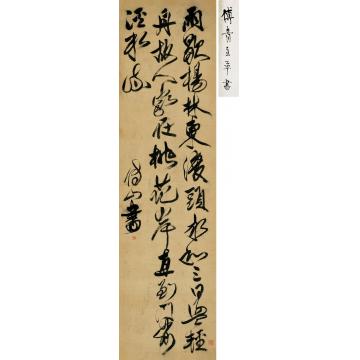 雨歇楊林東渡頭永和三日盪輕
舟故人家在桃花岸直到門前
溪水流
傅山書
傅青主草書